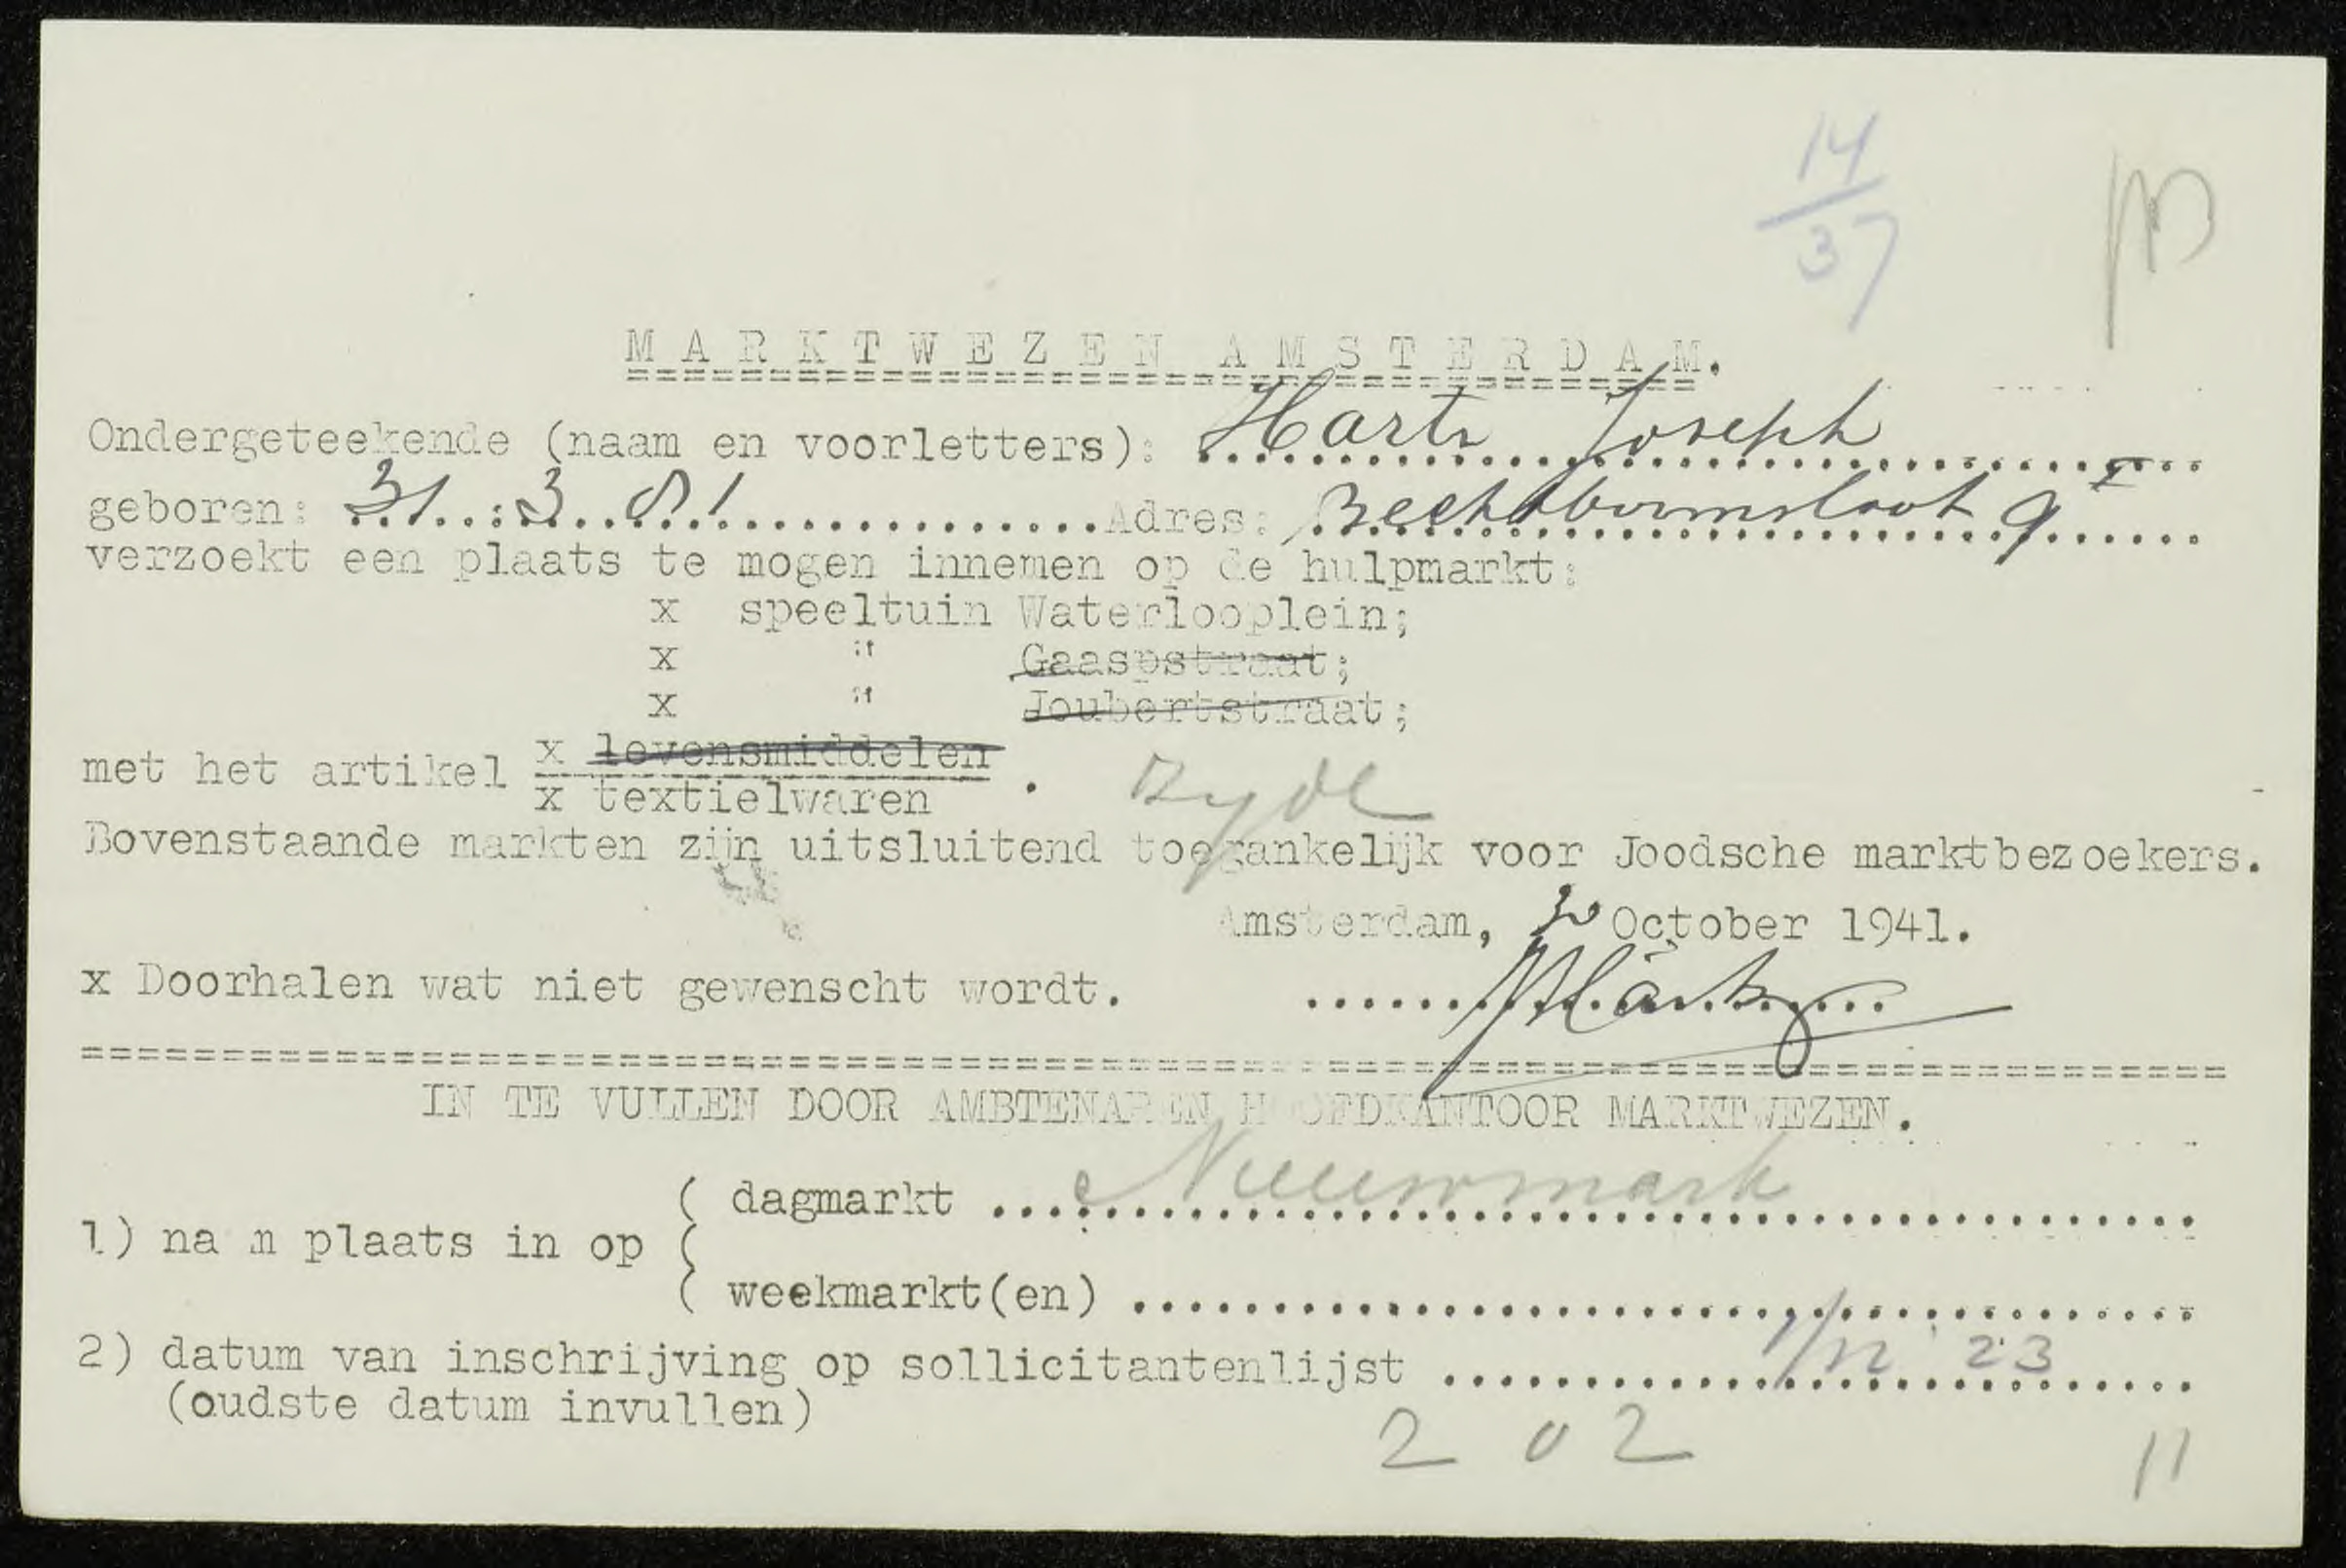 14
37
MARKTWEZEN AMSTERDAM.
Ondergeteekende (naam en voorletters): Hartz Joseph
geboren: 31 : 3 81 Adres: Rechtboomsloot 9 I
verzoekt een plaats te mogen innemen op de hulpmarkt:
x speeltuin Waterlooplein;
x " Gaaspstraat;
x " Joubertstraat;
met het artikel x levensmiddelen
x textielwaren .
Bovenstaande markten zijn uitsluitend toegankelijk voor Joodsche marktbezoekers.
Amsterdam, 30 October 1941.
x Doorhalen wat niet gewenscht wordt. JHartz
IN TE VULLEN DOOR AMBTENAREN HOOFDKANTOOR MARKTWEZEN.
1) na m plaats in op ( dagmarkt Nieuwmark
( weekmarkt(en)
2) datum van inschrijving op sollicitantenlijst 1/12 '23
(oudste datum invullen)
202 11